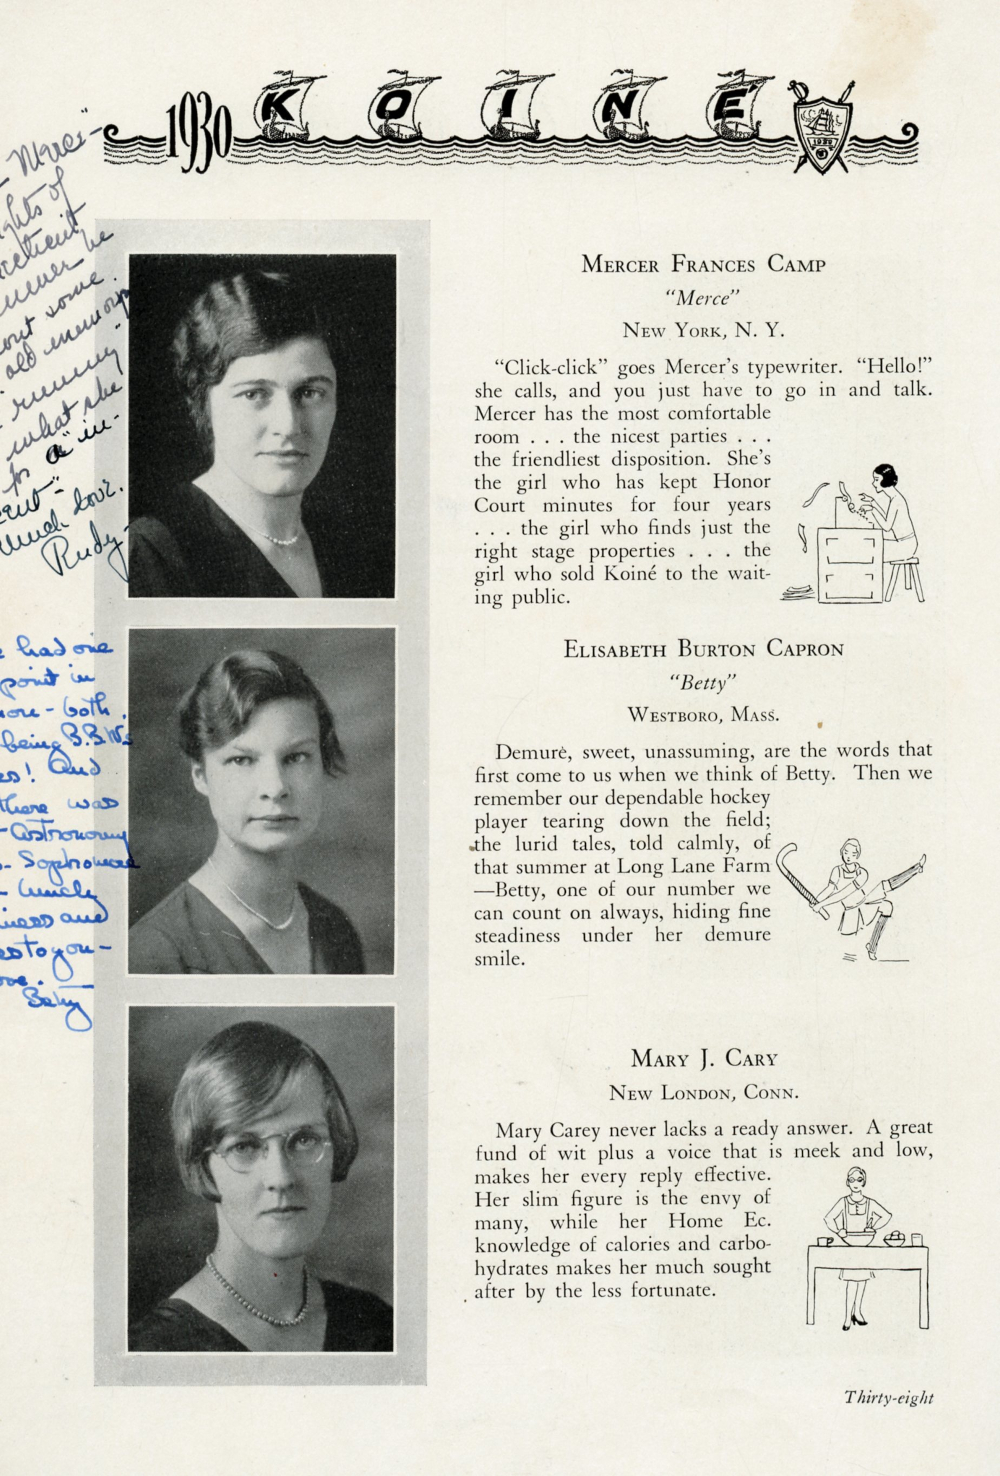 1930 KOINÉ
1930
Merce"-
of
never be
out some
old memory
what she
for a "in-
much love.
Rudy-
MERCER FRANCES CAMP
"Merce"
NEW YORK, N. Y.
"Click-click" goes Mercer's typewriter. "Hello!"
she calls, and you just have to go in and talk.
Mercer has the most comfortable
room . . . the nicest parties . . .
the friendliest disposition. She's
the girl who has kept Honor
Court minutes for four years
. . . the girl who finds just the
right stage properties . . . the
girl who sold Koiné to the wait-
ing public.
had one
point in
- both
being B.B.W.s
! And
there was
- Astronomy
- Sophomore
and
to you -
Betty
ELISABETH BURTON CAPRON
"Betty"
WESTBORO, MASS.
Demure, sweet, unassuming, are the words that
first come to us when we think of Betty. Then we
remember our dependable hockey
player tearing down the field;
the lurid tales, told calmly, of
that summer at Long Lane Farm
—Betty, one of our number we
can count on always, hiding fine
steadiness under her demure
smile.
MARY J. CARY
NEW LONDON, CONN.
Mary Carey never lacks a ready answer. A great
fund of wit plus a voice that is meek and low,
makes her every reply effective.
Her slim figure is the envy of
many, while her Home Ec.
knowledge of calories and carbo-
hydrates makes her much sought
after by the less fortunate.
Thirty-eight